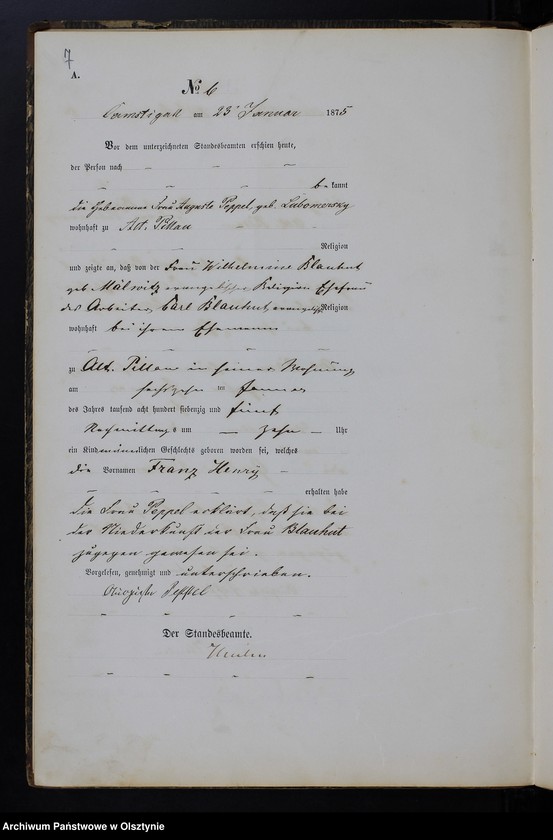 7
A.
No. 6
Camstigall am 23t Januar 1875
Vor dem unterzeichneten Standesbeamten erschien heute,
der Person nach
be kannt
die Hebamme Frau Auguste Poppel geb. Lubomersky
wohnhaft zu Alt. Pillau
Religion
und zeigte an, daß von der Frau Wilhelmine Blauhut
geb. Malwitz evangelischer Religion Ehefrau
des Arbeiters Carl Blauhut, evangelisch Religion
wohnhaft bei ihrem Ehemann
zu Alt. Pillau in seiner Wohnung
am sechszehn ten Januar
des Jahres tausend acht hundert siebenzig und fünf
Nachmittags um zehn Uhr
ein Kind männlichen Geschlechts geboren worden sei, welches
die Vornamen Franz Henry
erhalten habe
Die Frau Poppel erklärt, daß sie bei
der Niederkunft der Frau Blauhut
zugegen gewesen sei.
Vorgelesen, genehmigt und unterschrieben.
Der Standesbeamte.
Archiwum Państwowe w Olsztynie